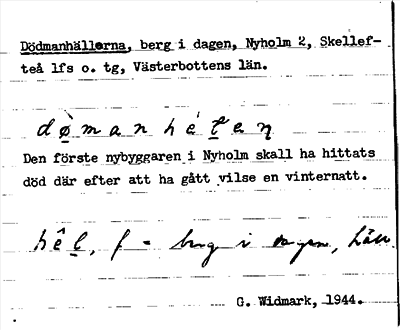 Dödmanhällorna, berg i dagen, Nyholm 2, Skellef-
teå lfs o. tg, Västerbottens län.
dø̀manhét̲en
Den förste nybyggaren i Nyholm skall ha hittats
död där efter att ha gått vilse en vinternatt.
hêl̲, f = berg i dagen, häll
G. Widmark, 1944.